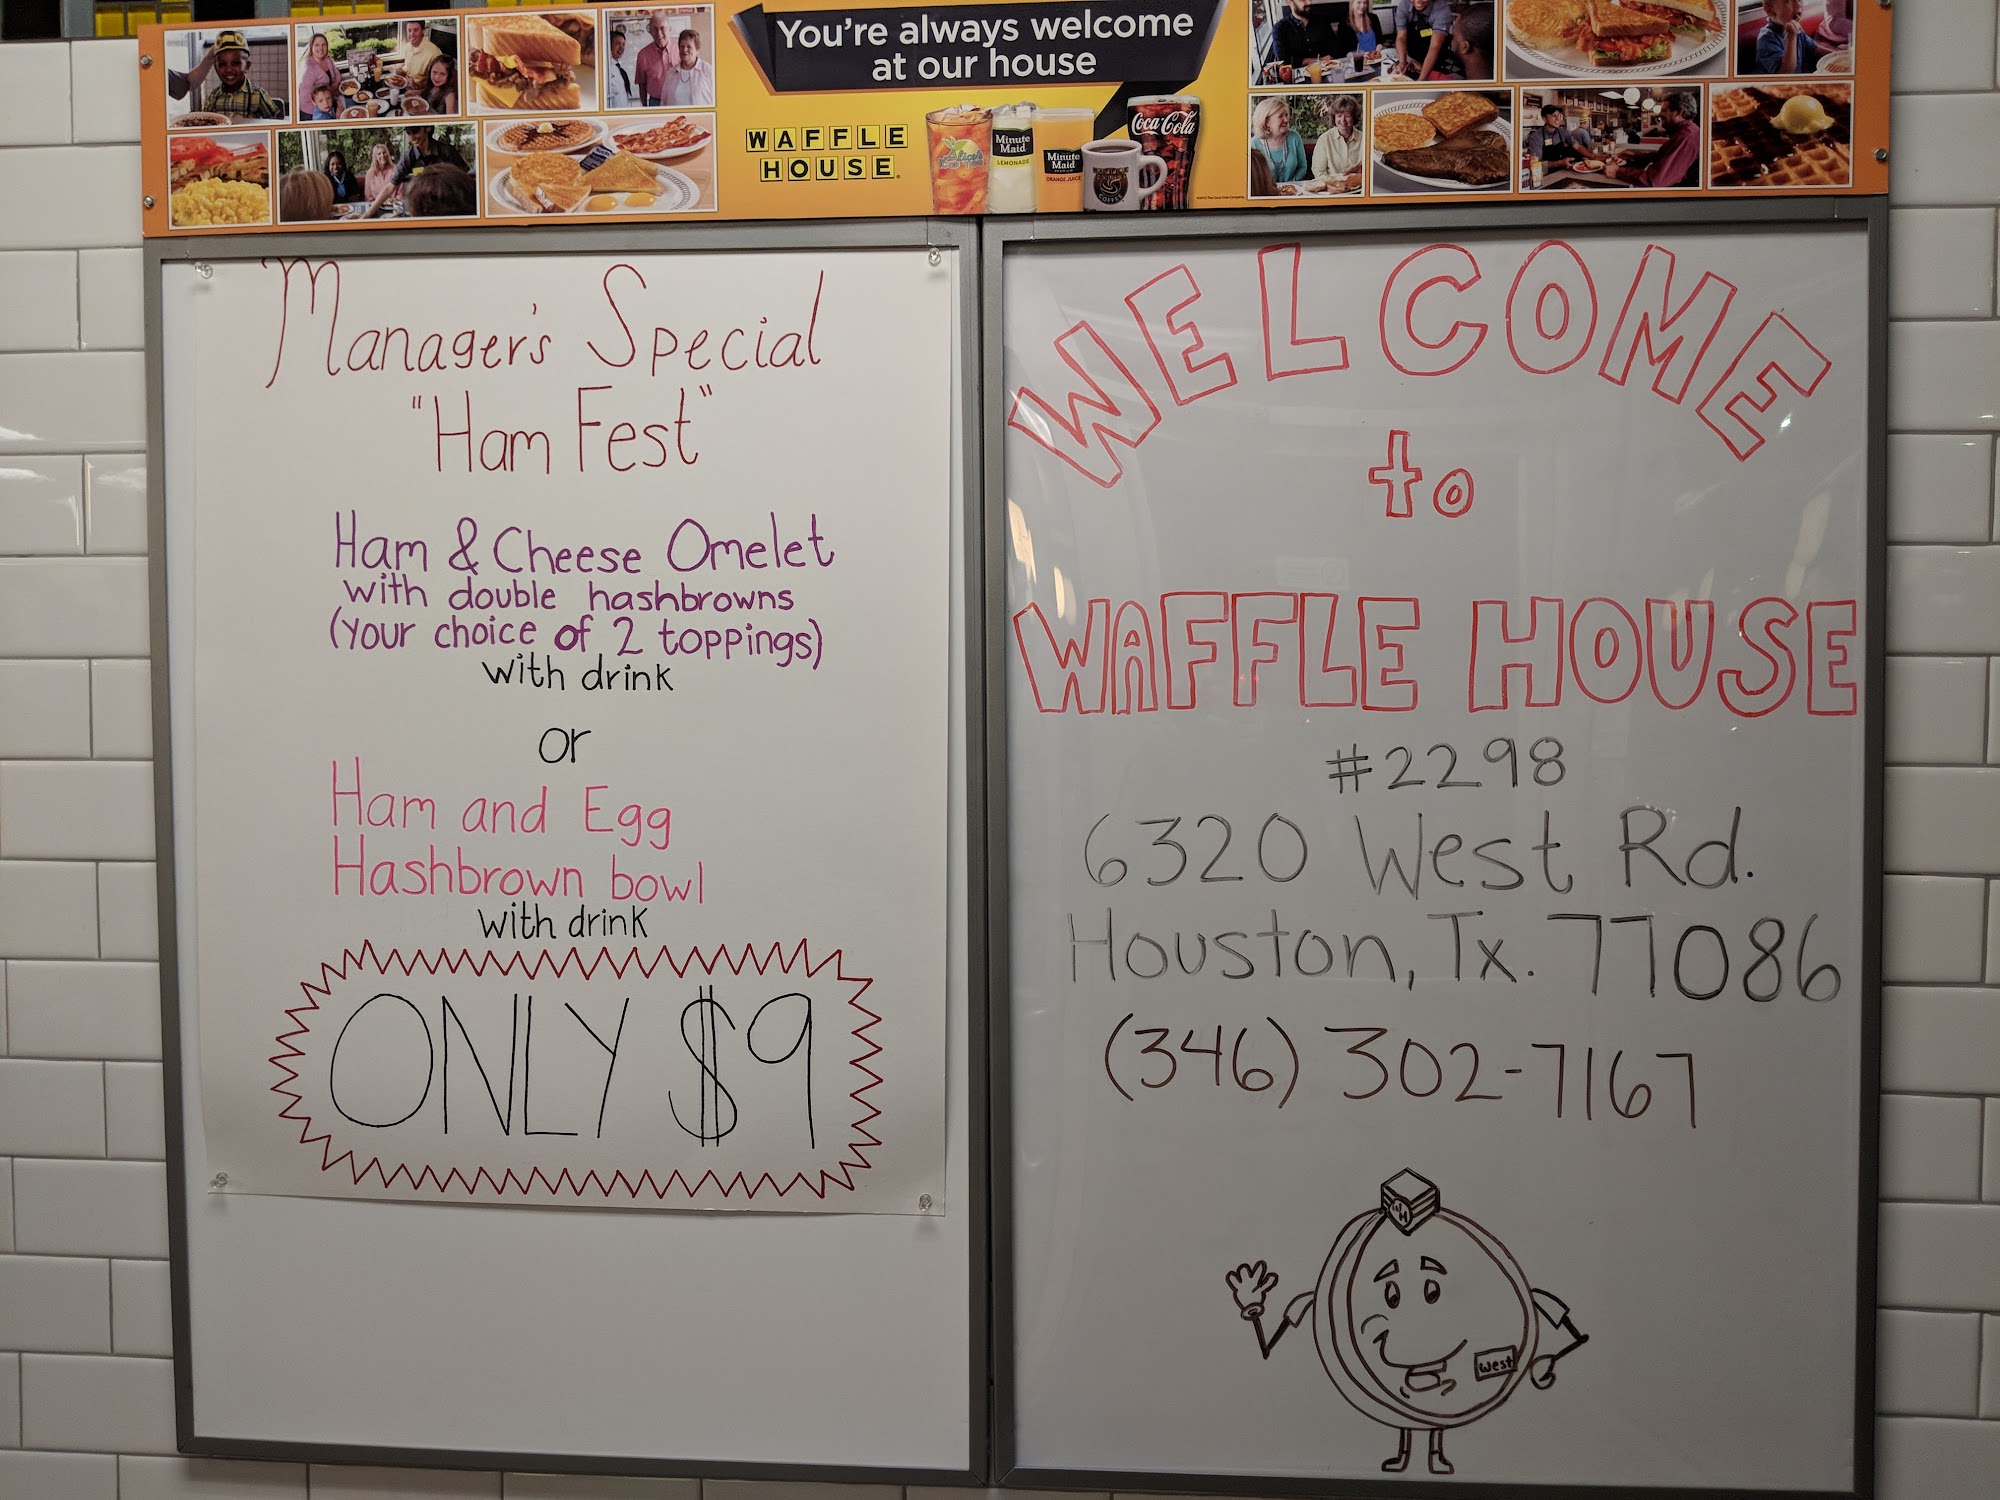 You're always welcome
at our house
WAFFLE
HOUSE
Minute
Maid
LEMONADE
Minute
Maid
ORANGE JUICE
Coca-Cola
Manager's Special
"Ham Fest"
Ham & Cheese Omelet
with double hashbrowns
(your choice of 2 toppings)
with drink
or
Ham and Egg
Hashbrown bowl
with drink
ONLY $9
WELCOME
to
WAFFLE HOUSE
#2298
6320 West Rd.
Houston, Tx. 77086
(346) 302-7167
WH
West